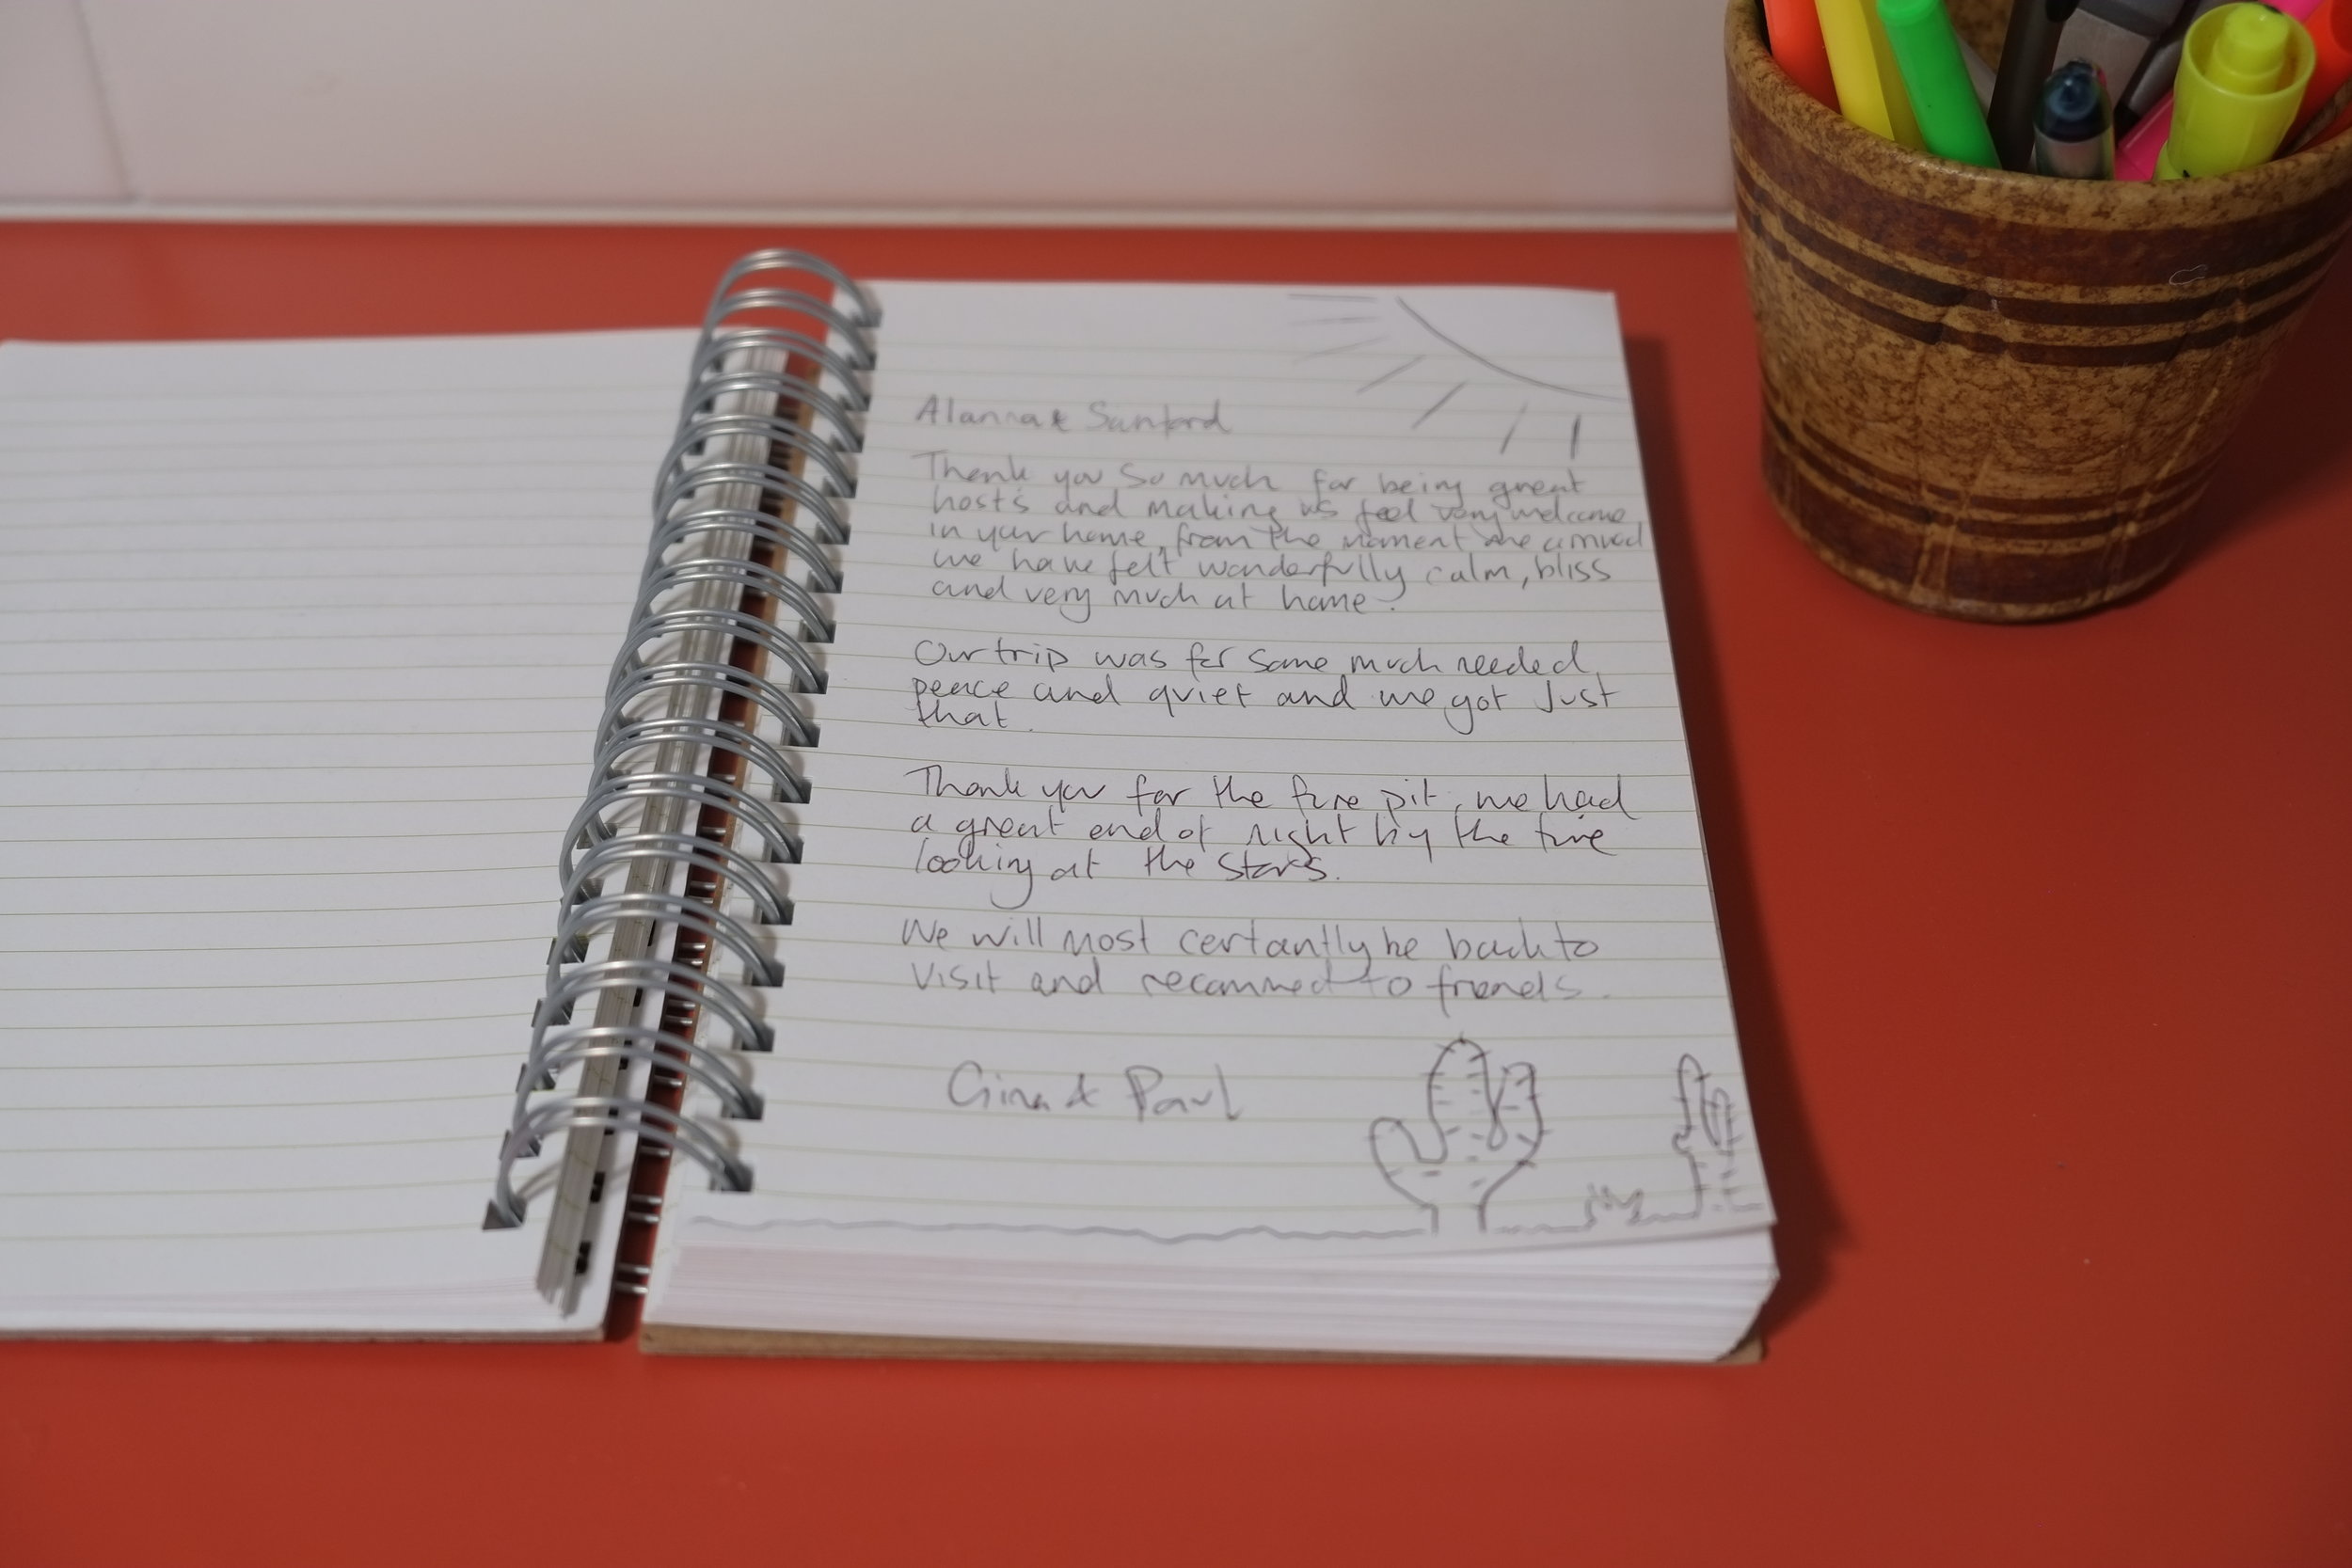 Alanna & Sanford
Thank you so much for being great
host's and making us feel very welcome
in your home, from the moment we arrived
we have felt wonderfully calm, bliss
and very much at home.
Our trip was for some much needed
peace and quiet and we got just
that.
Thank you for the fire pit, we had
a great end of night by the fire
looking at the stars.
We will most certantly be back to
visit and recommed to friends.
Gina & Paul